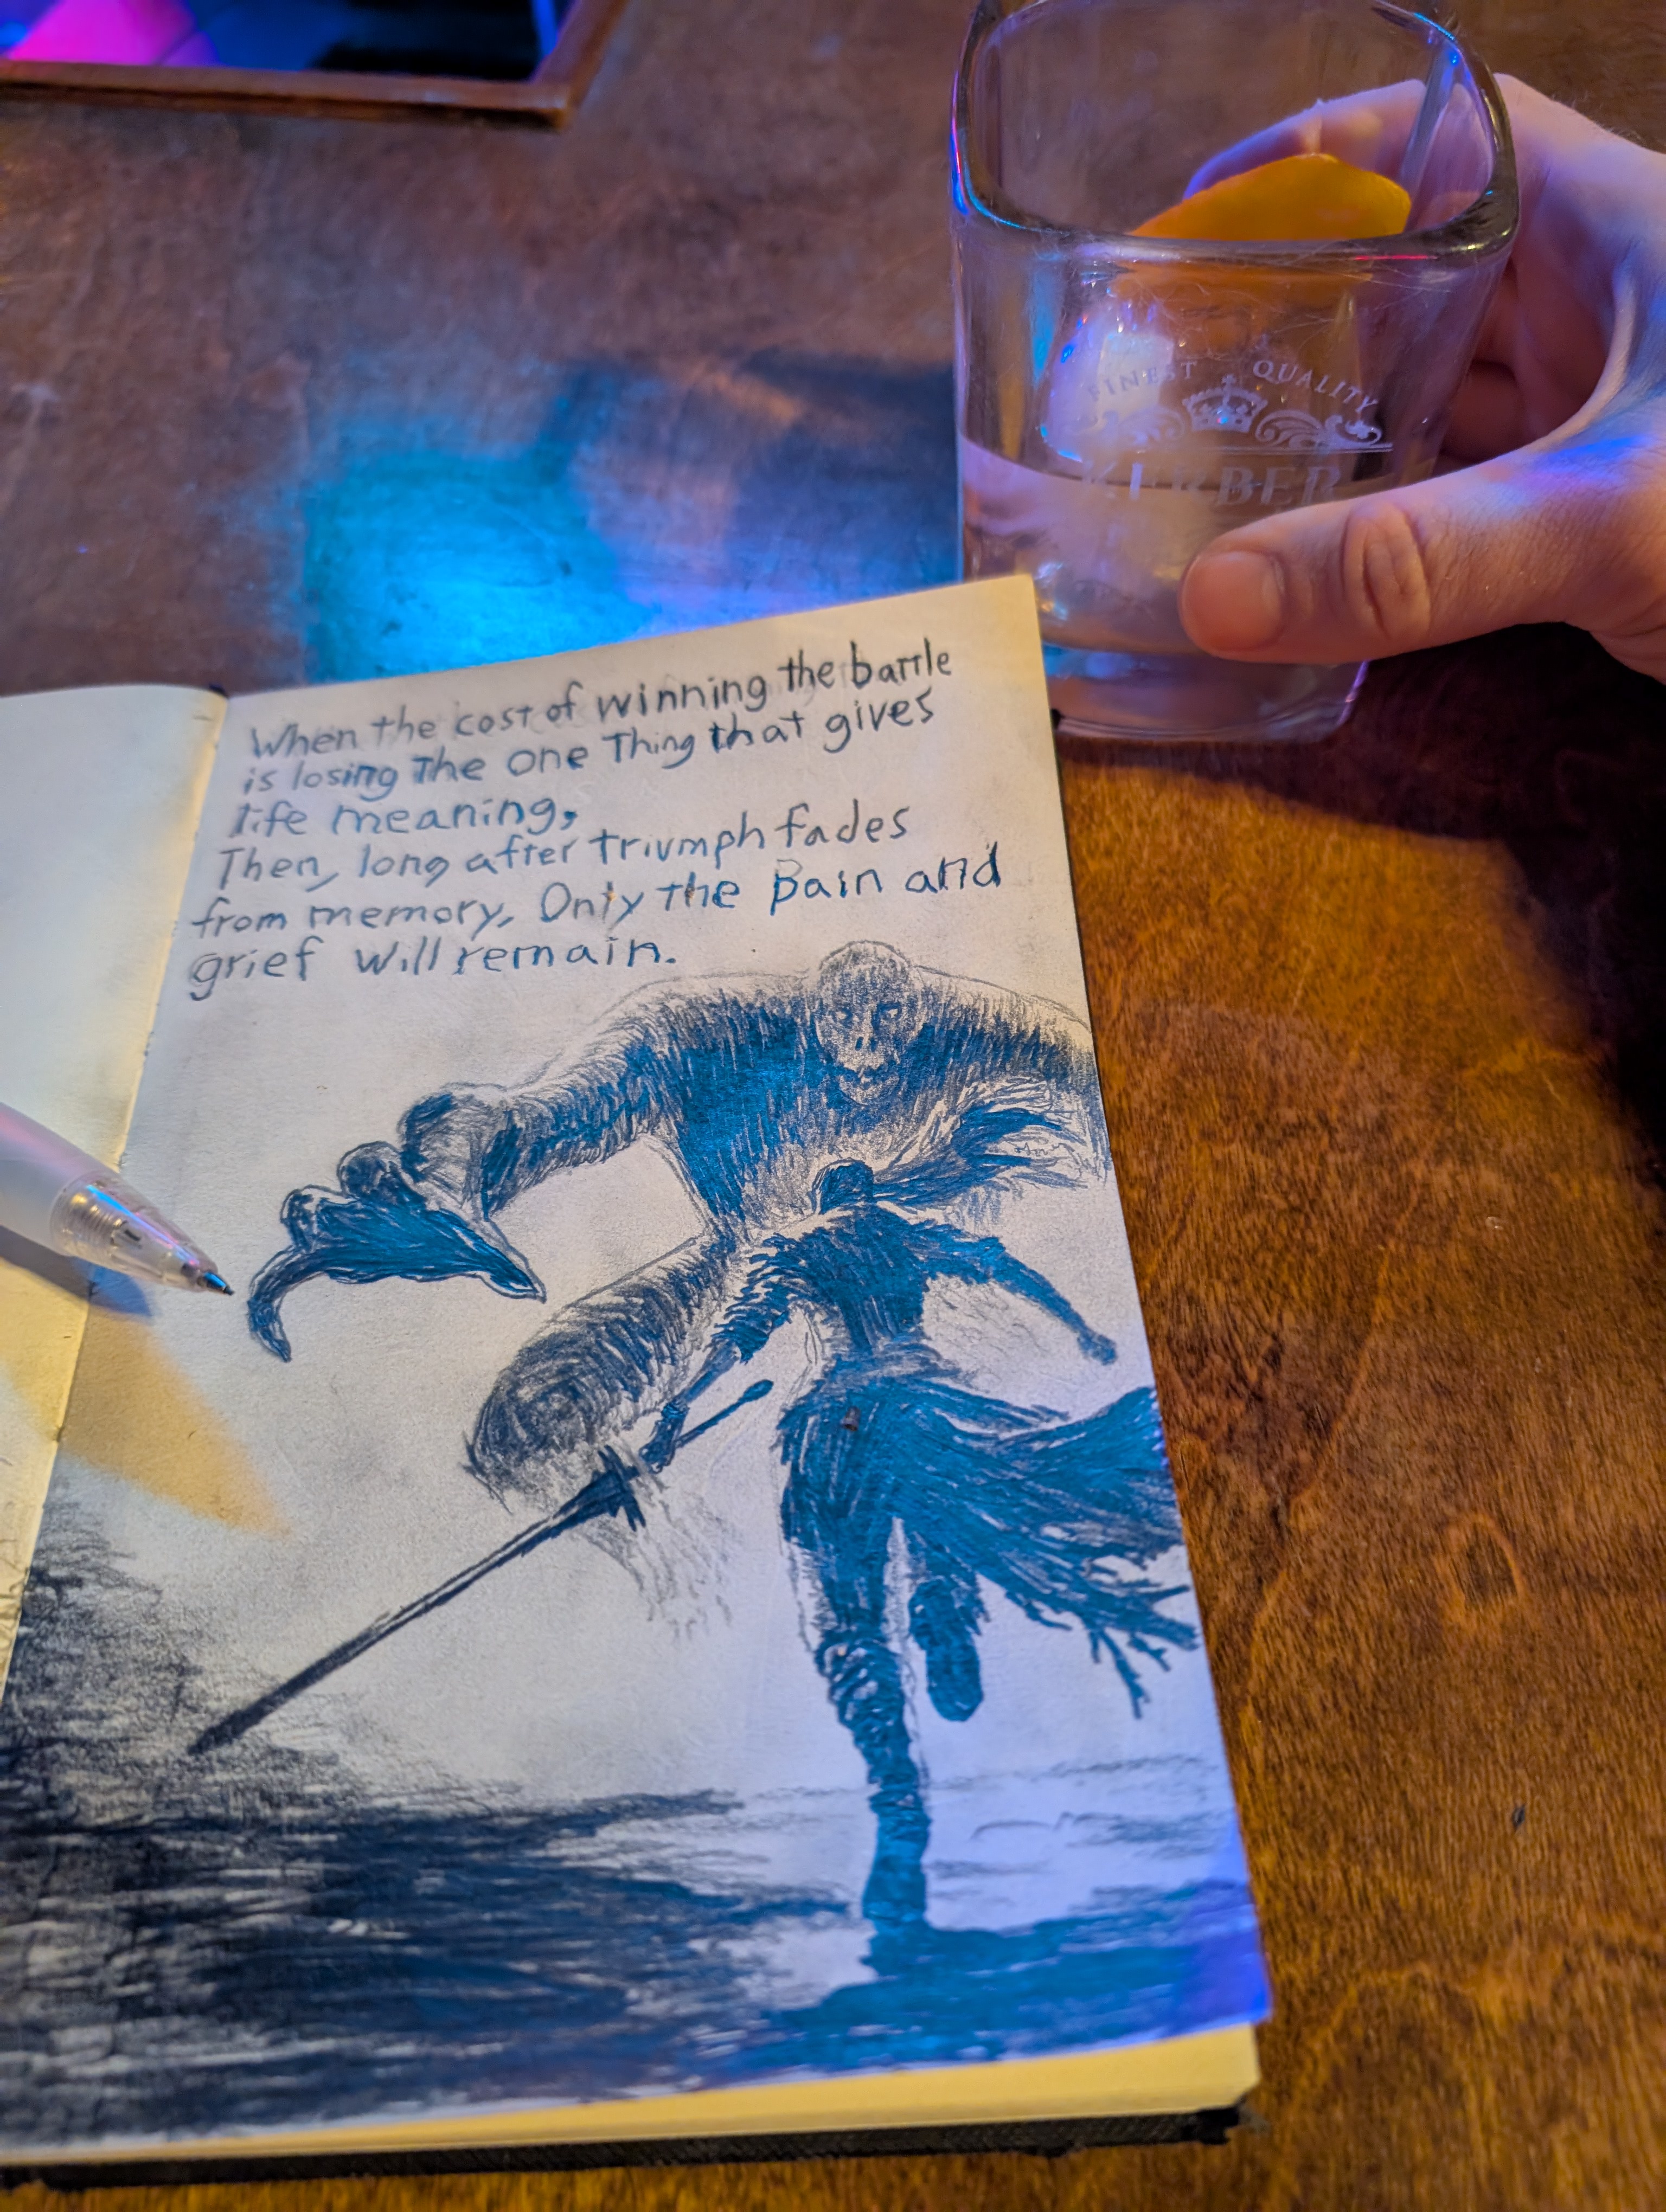 FINEST QUALITY
KERBER
When the cost of winning the battle
is losing The one Thing that gives
life meaning,
Then, long after triumph fades
from memory, Only the Pain and
grief will remain.